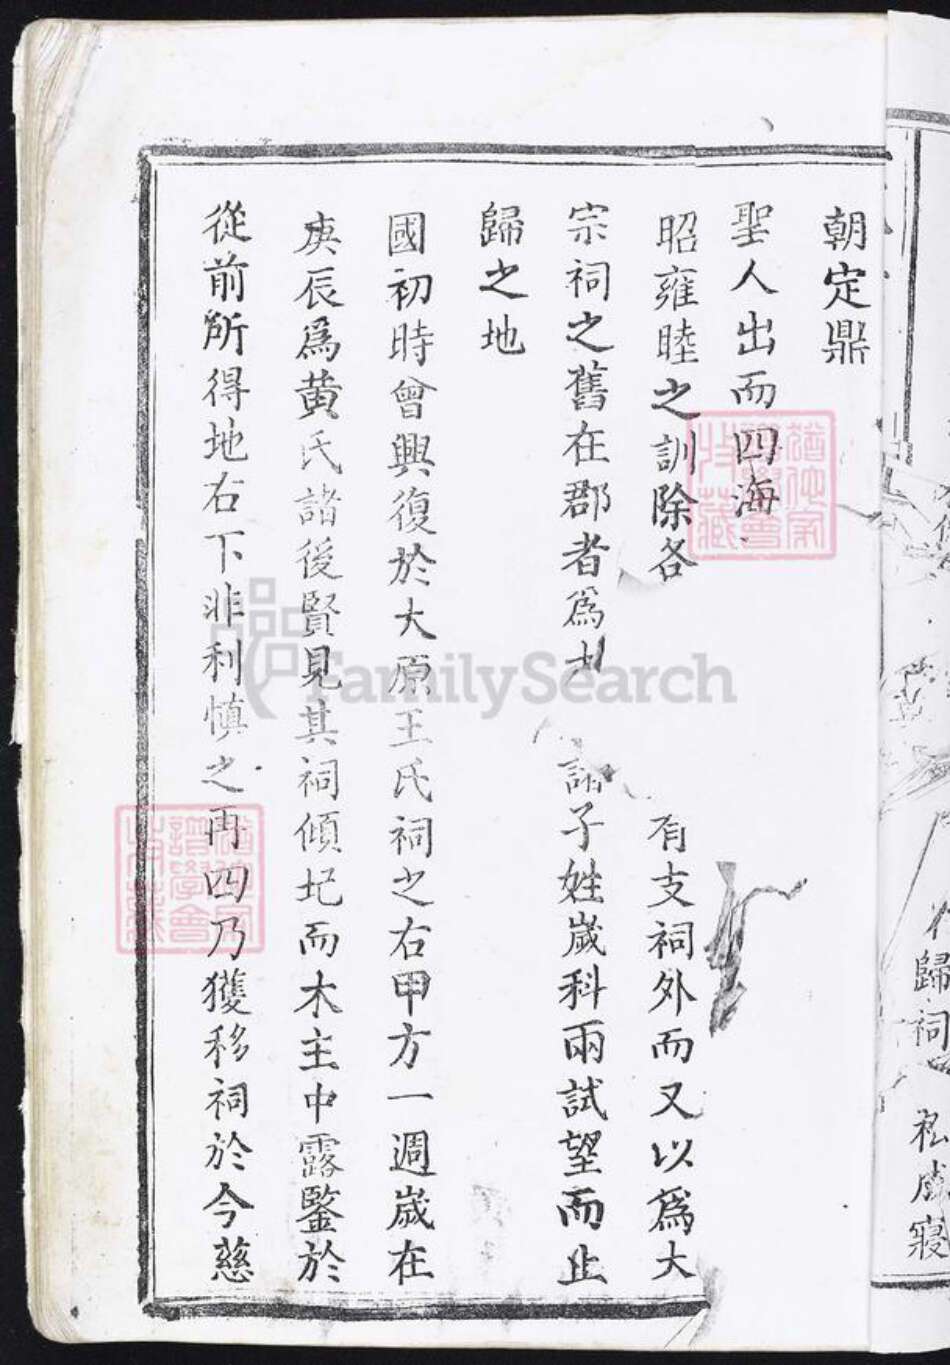 歸祠
私成寢
朝定鼎
聖人出而四海
昭雍睦之訓除各 有支祠外而又以為大
宗祠之舊在郡者為 諸子姓歲科兩試望而止
歸之地
國初時曾興復於大原王氏祠之右甲方一週歲在
庚辰為黄氏諸後賢見其祠傾圮而木主中露鑒於
從前所得地右下非利慎之再四乃獲移祠於今慈
FamilySearch